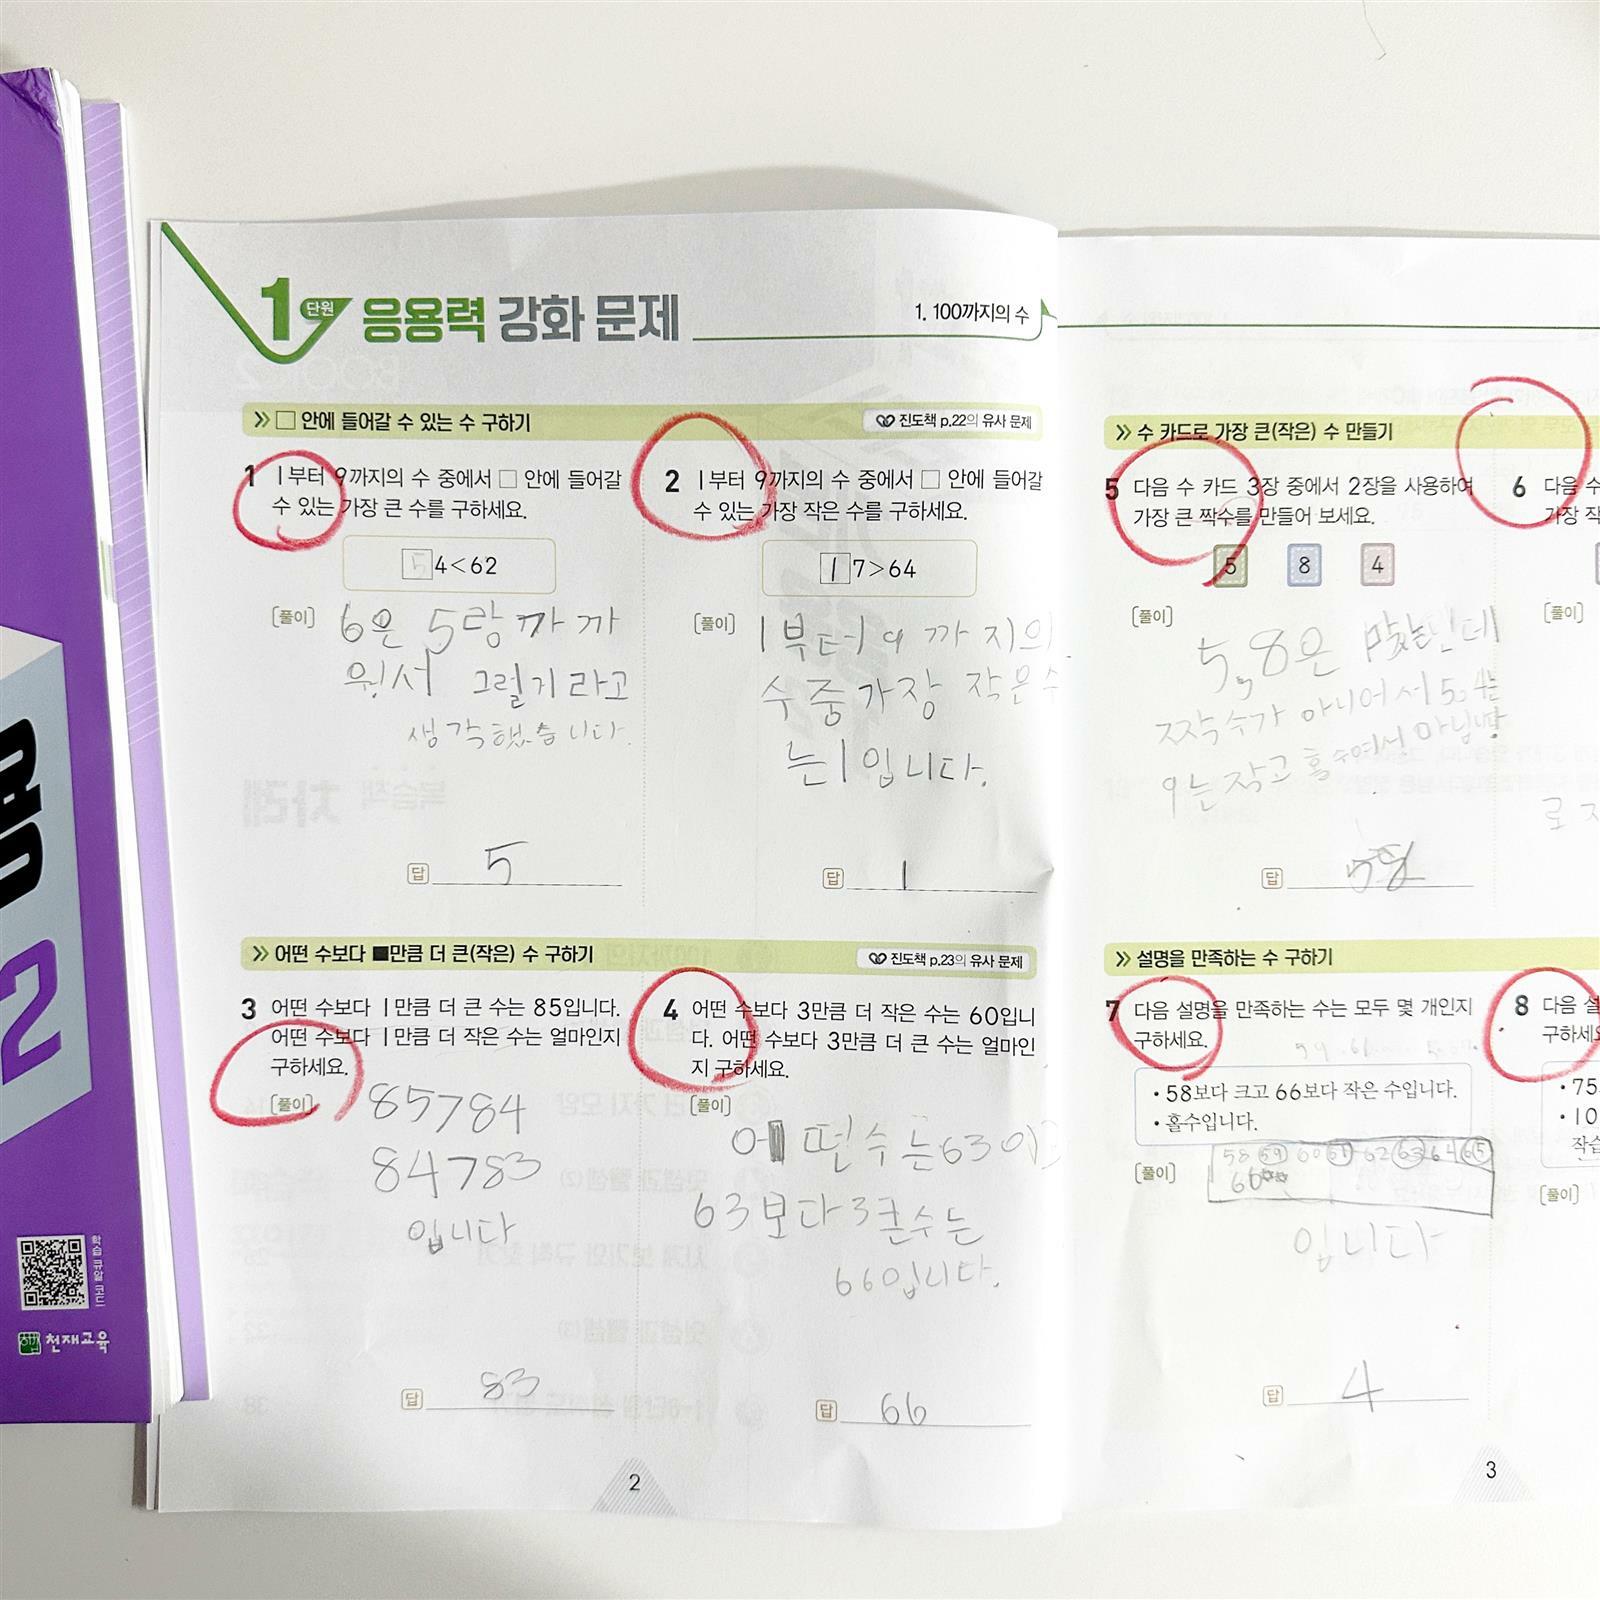 1단원 응용력 강화 문제
1. 100까지의 수
□ 안에 들어갈 수 있는 수 구하기
진도책 p.22의 유사 문제
1 1부터 9까지의 수 중에서 □ 안에 들어갈
수 있는 가장 큰 수를 구하세요.
5 4<62
[풀이] 6은 5랑 가까
워서 그렇기라고
생각했습니다.
답 5
2 1부터 9까지의 수 중에서 □ 안에 들어갈
수 있는 가장 작은 수를 구하세요.
1 7>64
[풀이] 1부터 9까지의
수중가장 작은수
는1입니다.
답 1
어떤 수보다 ■만큼 더 큰(작은) 수 구하기
진도책 p.23의 유사 문제
3 어떤 수보다 1만큼 더 큰 수는 85입니다.
어떤 수보다 1만큼 더 작은 수는 얼마인지
구하세요.
[풀이] 85784
84783
입니다
답 83
4 어떤 수보다 3만큼 더 작은 수는 60입니
다. 어떤 수보다 3만큼 더 큰 수는 얼마인
지 구하세요.
[풀이]
어떤수는63이고
63보다3큰수는
66입니다.
답 66
2
수 카드로 가장 큰(작은) 수 만들기
5 다음 수 카드 3장 중에서 2장을 사용하여
가장 큰 짝수를 만들어 보세요.
5 8 4
[풀이]
5,8은
짝수가 아니어서
는작고 홀수여서
답 58
6 다음 수
가장 작
[풀이]
로
설명을 만족하는 수 구하기
7 다음 설명을 만족하는 수는 모두 몇 개인지
구하세요.
• 58보다 크고 66보다 작은 수입니다.
• 홀수입니다.
[풀이] 58 59 60 61 62 63 64 65
66
입니다
답 4
8 다음 설
구하세요
• 75
• 10
작습
[풀이]
3
2
학습 큐알 코드
천재교육